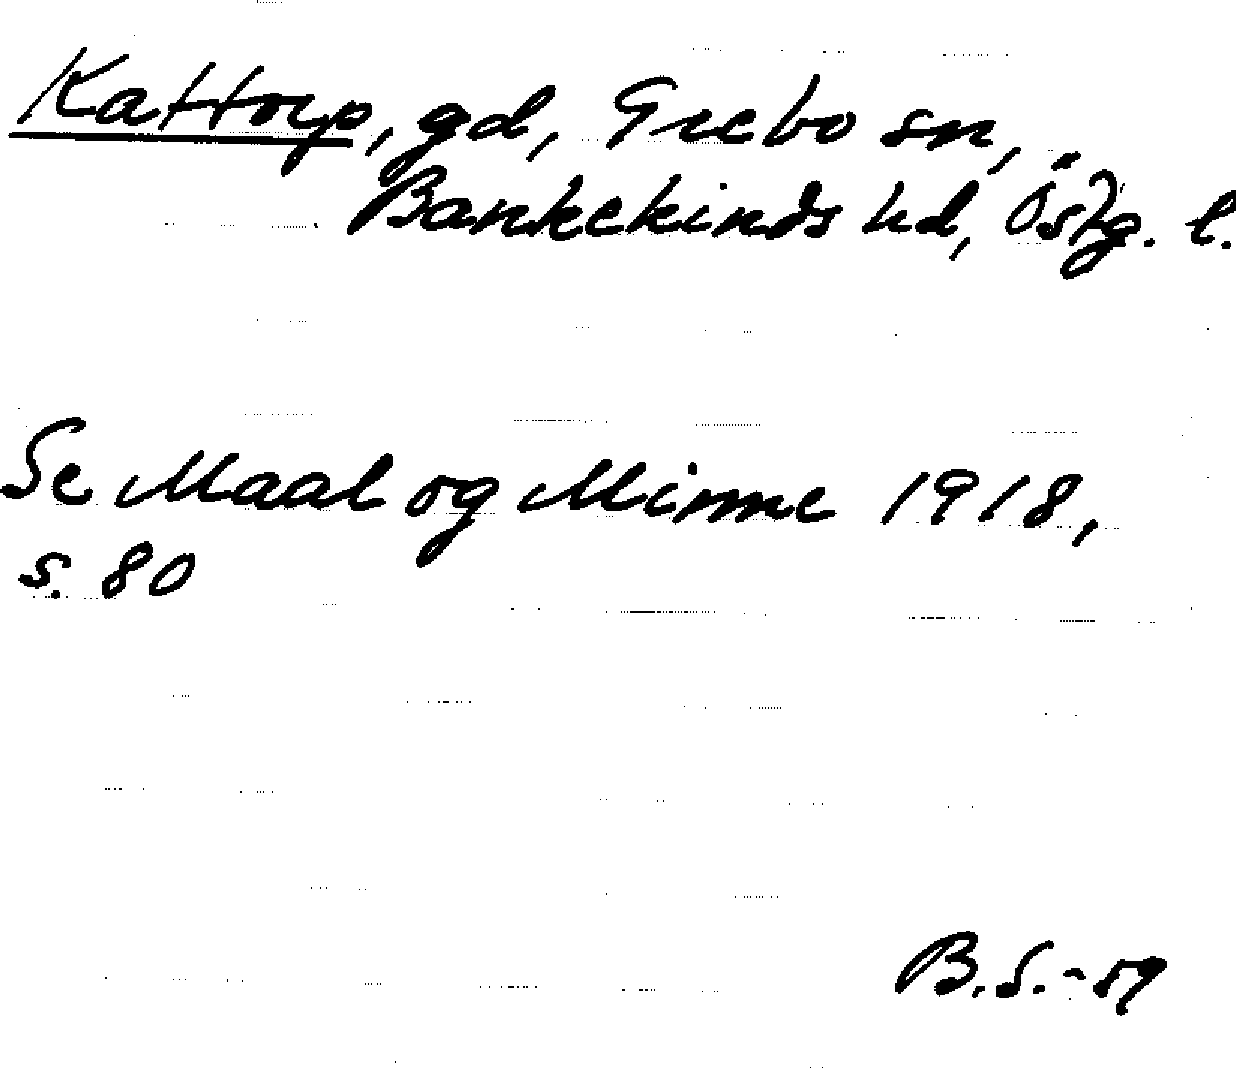 Kattorp, gd, Grebo sn,
Bankekinds hd, Östg. l.
Se Maal og Minne 1918,
s. 80
B.S.-59